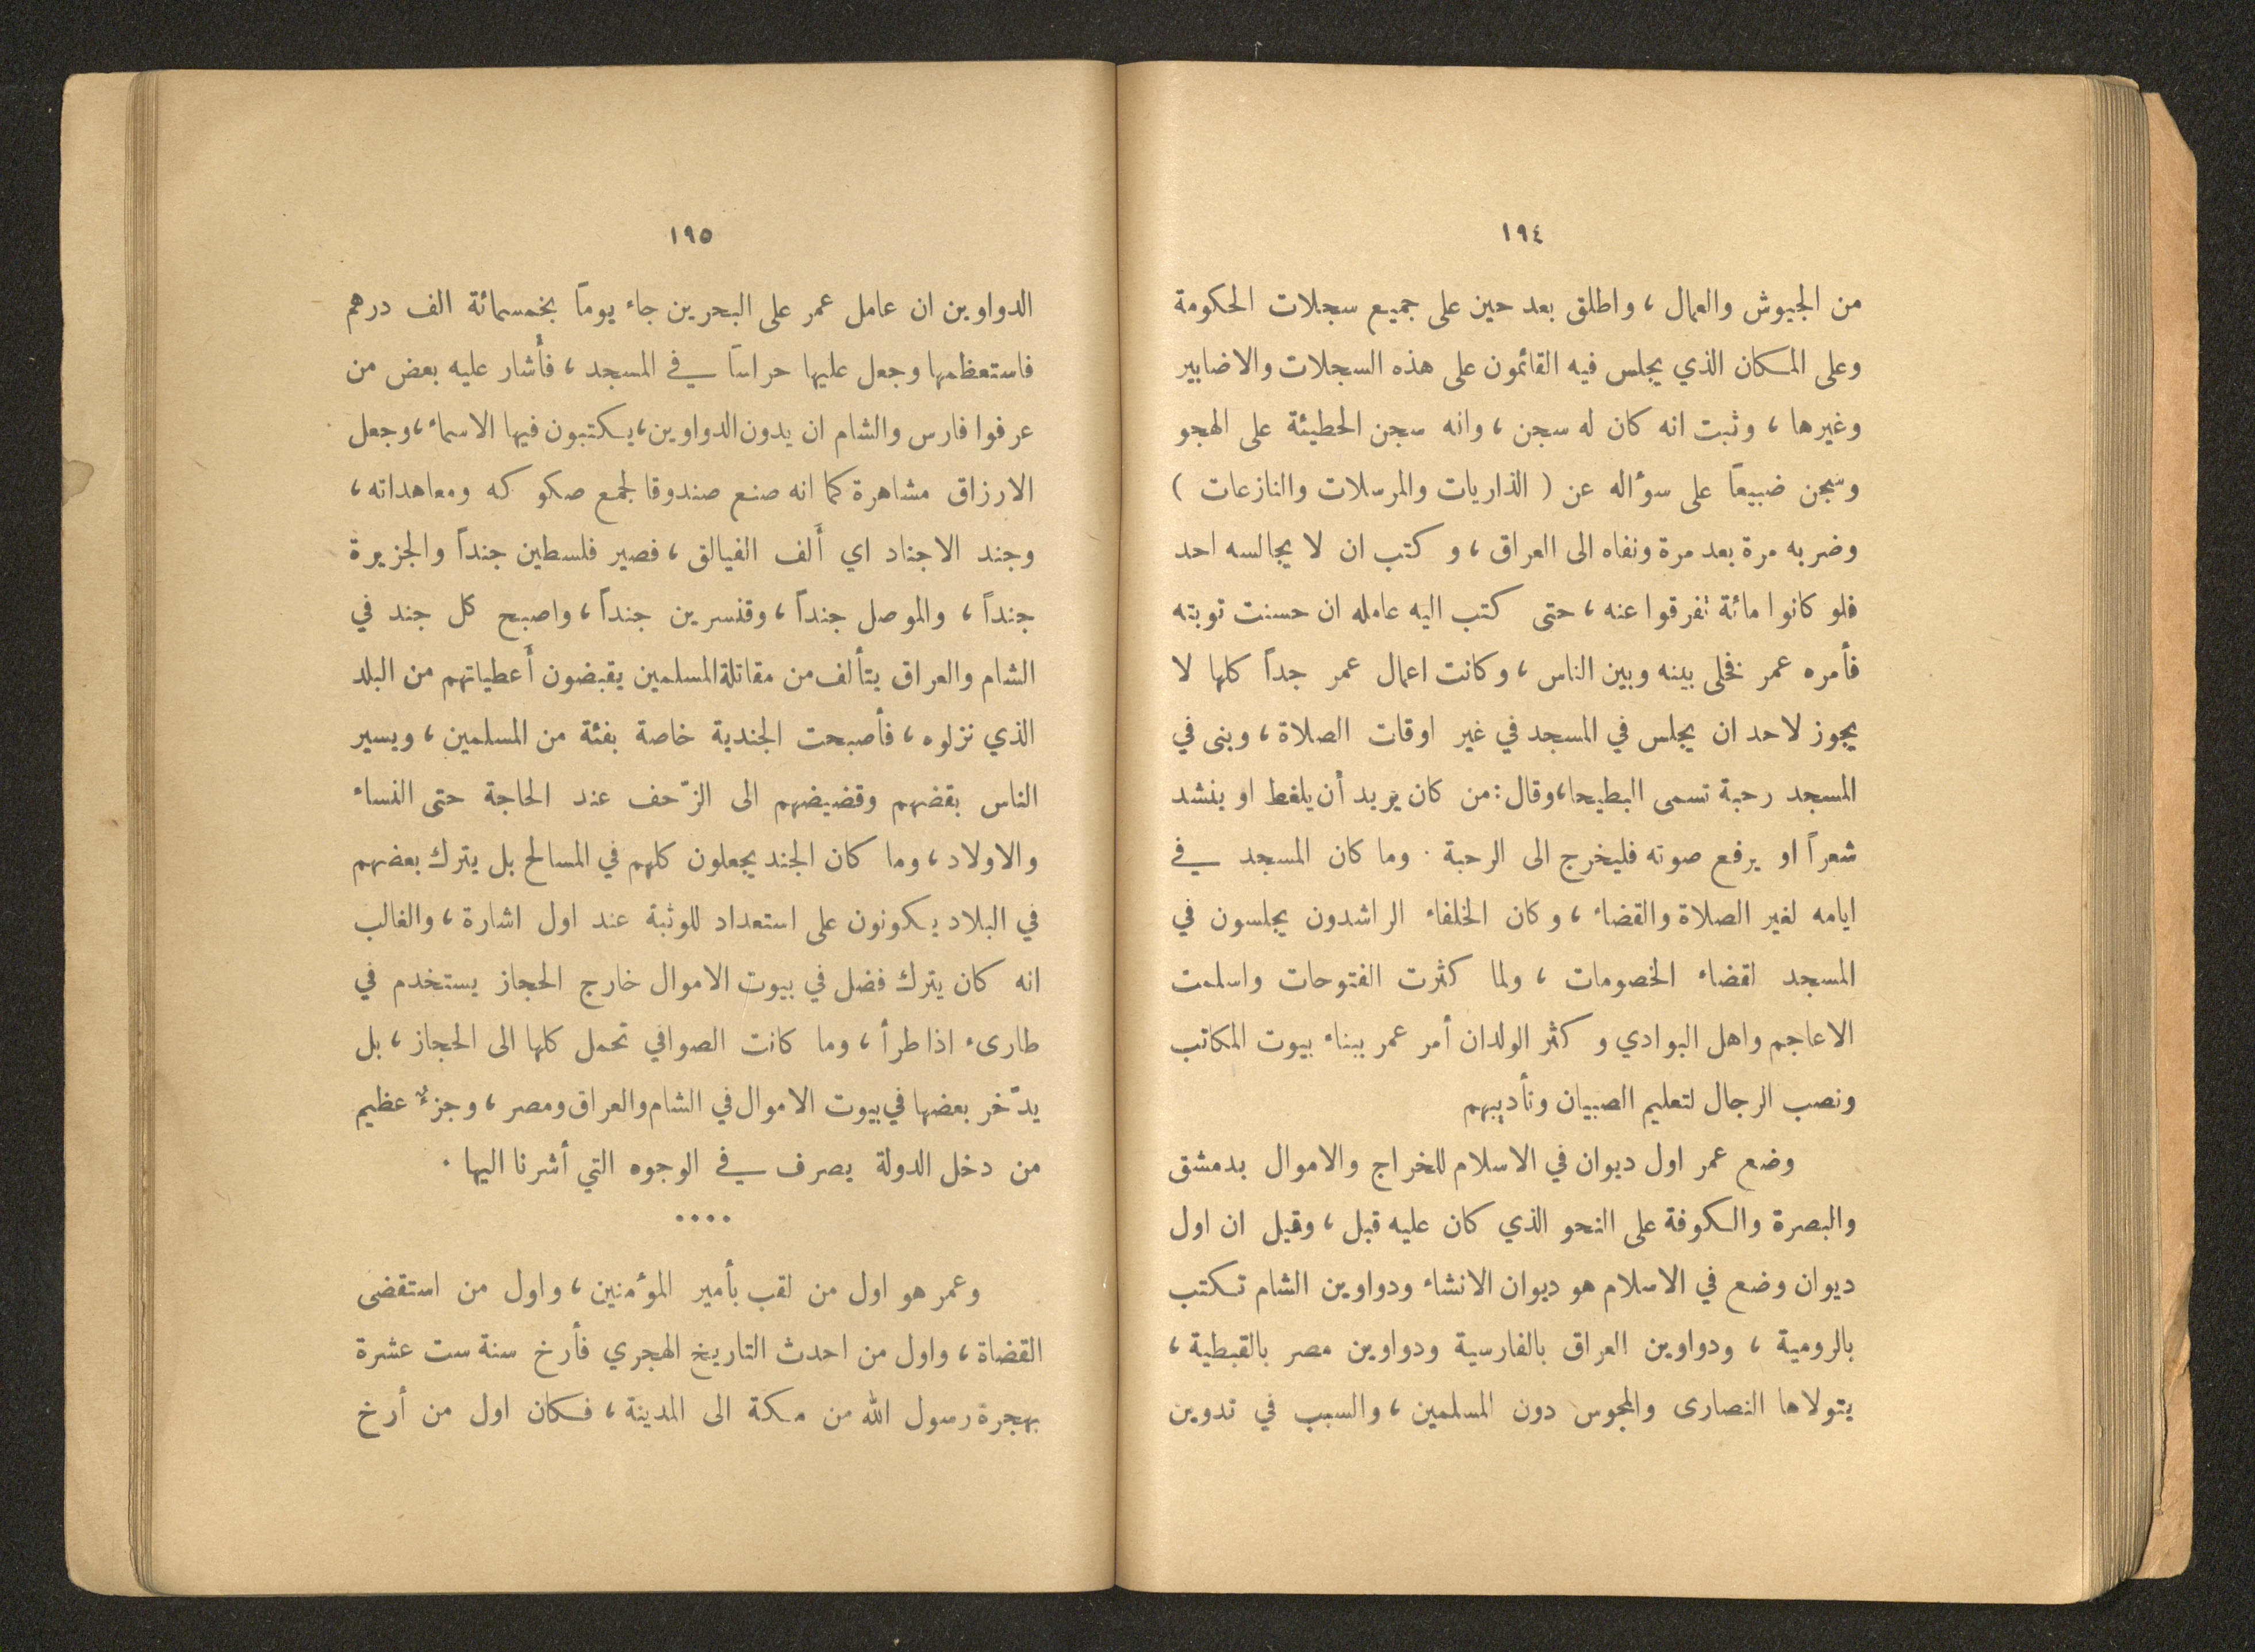 ١٩٤
من الجيوش والعمال ، واطلق بعد حين على جميع سجلات الحكومة
وعلى المكان الذي يجلس فيه القائمون على هذه السجلات والاضابير
وغيرها ، وثبت انه كان له سجن ، وانه سجن الحطيئة على الهجو
وسجن ضبيعاً على سؤاله عن ( الذاريات والمرسلات والنازعات )
وضربه مرة بعد مرة ونفاه الى العراق ، وكتب ان لا يجالسه احد
فلو كانوا مائة تفرقوا عنه ، حتى كتب اليه عامله ان حسنت توبته
فأمره عمر فخلى بينه وبين الناس ، وكانت اعمال عمر جداً كلها لا
يجوز لاحد ان يجلس في المسجد في غير اوقات الصلاة ، وبنى في
المسجد رحبة تسمى البطيحا ، وقال : من كان يريد أن يلغط او ينشد
شعراً او يرفع صوته فليخرج الى الرحبة . وما كان المسجد في
ايامه لغير الصلاة والقضاء ، وكان الخلفاء الراشدون يجلسون في
المسجد لقضاء الخصومات ، ولما كثرت الفتوحات واسلمت
الاعاجم واهل البوادي وكثر الولدان أمر عمر ببناء بيوت المكاتب
ونصب الرجال لتعليم الصبيان وتأديبهم
وضع عمر اول ديوان في الاسلام للخراج والاموال بدمشق
والبصرة والكوفة على النحو الذي كان عليه قبل ، وقيل ان اول
ديوان وضع في الاسلام هو ديوان الانشاء ودواوين الشام تكتب
بالرومية ، ودواوين العراق بالفارسية ودواوين مصر بالقبطية ،
يتولاها النصارى والمجوس دون المسلمين ، والسبب في تدوين
١٩٥
الدواوين ان عامل عمر على البحرين جاء يوماً بخمسمائة الف درهم
فاستعظمها وجعل عليها حراساً في المسجد ، فأشار عليه بعض من
عرفوا فارس والشام ان يدون الدواوين ، يكتبون فيها الاسماء ، وجعل
الارزاق مشاهرة كما انه صنع صندوقا لجمع صكوكه ومعاهداته ،
وجند الاجناد اي أَلف الفيالق ، فصير فلسطين جنداً والجزيرة
جنداً ، والموصل جنداً ، وقنسرين جنداً ، واصبح كل جند في
الشام والعراق يتألف من مقاتلة المسلمين يقبضون أَعطياتهم من البلد
الذي نزلوه ، فأصبحت الجندية خاصة بفئة من المسلمين ، ويسير
الناس بقضهم وقضيضهم الى الزّحف عند الحاجة حتى النساء
والاولاد ، وما كان الجند يجعلون كلهم في المسالح بل يترك بعضهم
في البلاد يكونون على استعداد للوثبة عند اول اشارة ، والغالب
انه كان يترك فضل في بيوت الاموال خارج الحجاز يستخدم في
طارىء اذا طرأ ، وما كانت الصوافي تحمل كلها الى الحجاز ، بل
يدّخر بعضها في بيوت الاموال في الشام والعراق ومصر ، وجزءٌ عظيم
من دخل الدولة يصرف في الوجوه التي أشرنا اليها .
....
وعمر هو اول من لقب بأمير المؤمنين ، واول من استقضى
القضاة ، واول من احدث التاريخ الهجري فأرخ سنة ست عشرة
بهجرة رسول الله من مكة الى المدينة ، فكان اول من أرخ